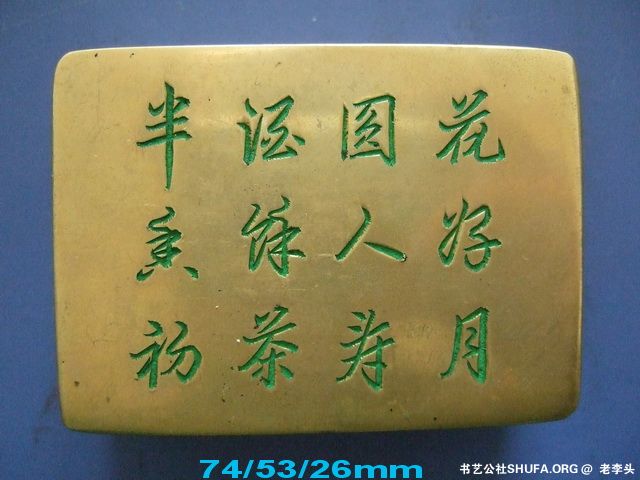 花好月
圆人寿
酒馀茶
半香初
74/53/26mm
书艺公社SHUFA.ORG @ 老李头